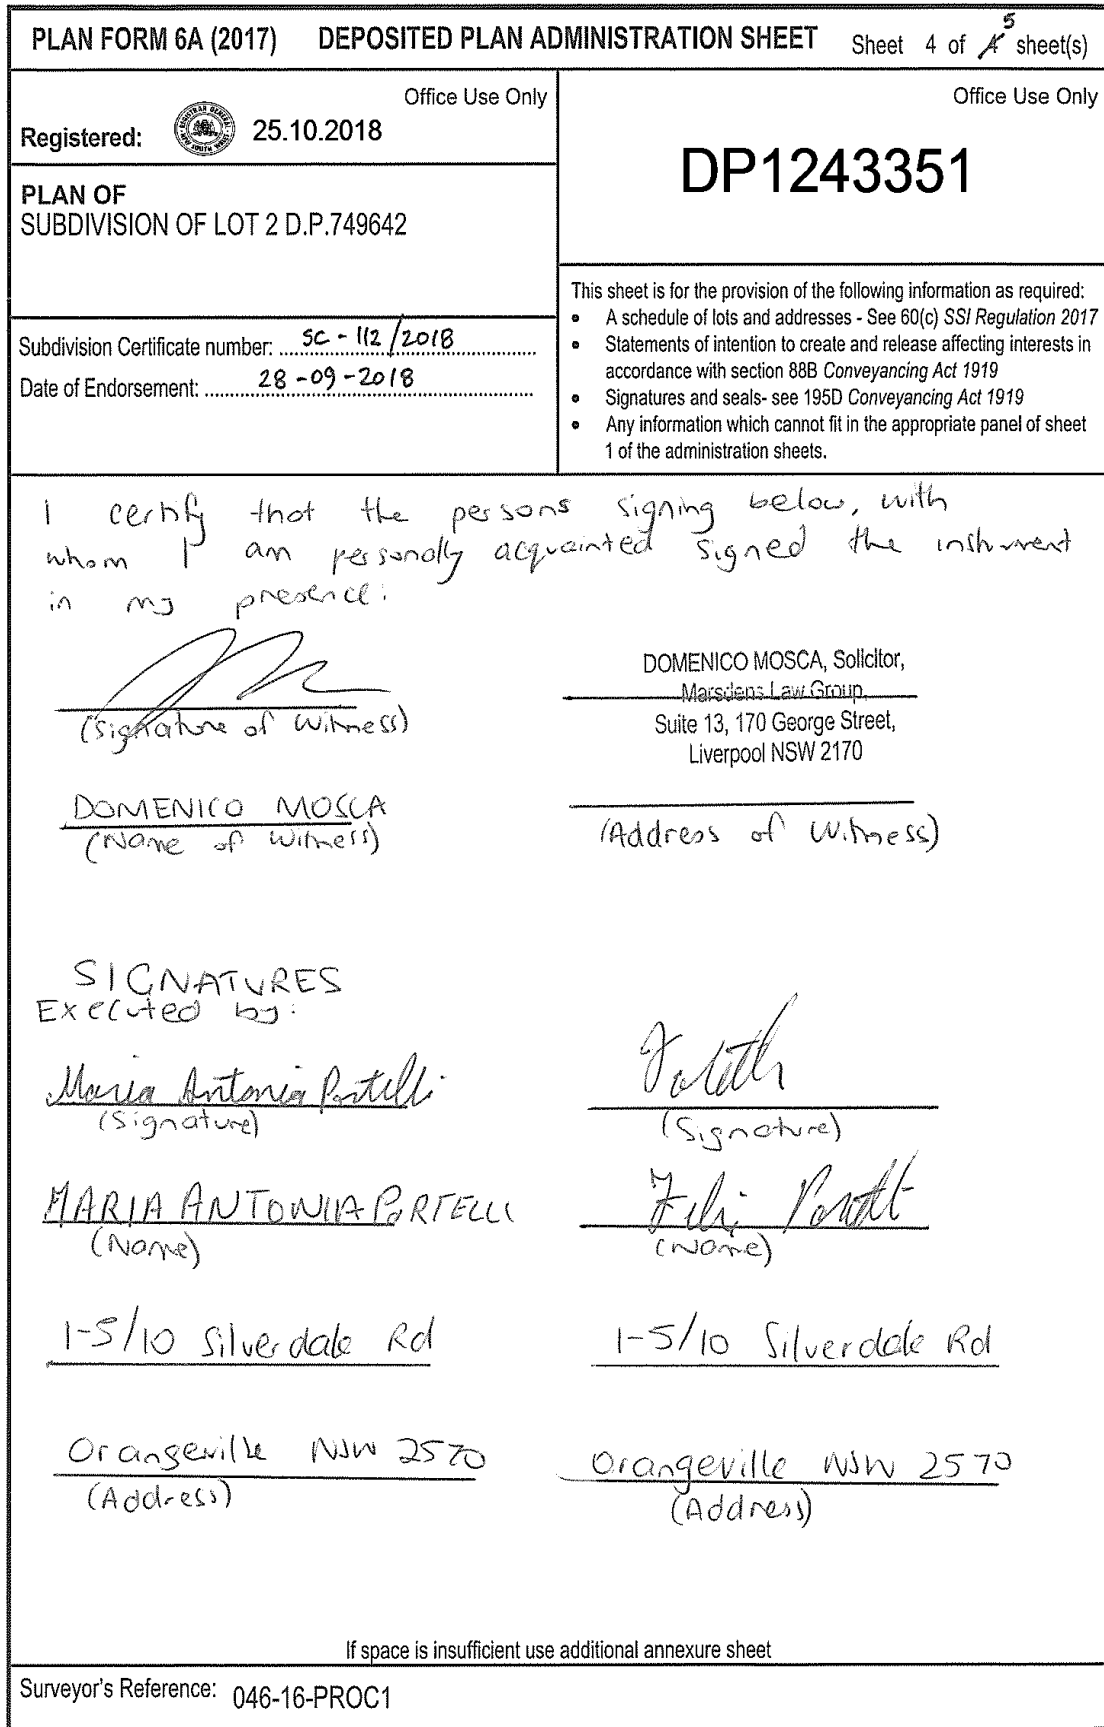 PLAN FORM 6A (2017) DEPOSITED PLAN ADMINISTRATION SHEET Sheet 4 of 5 sheet(s)
Office Use Only
Registered: 25.10.2018
PLAN OF
SUBDIVISION OF LOT 2 D.P.749642
Subdivision Certificate number: SC - 112/2018
Date of Endorsement: 28-09-2018
Office Use Only
DP1243351
This sheet is for the provision of the following information as required:
• A schedule of lots and addresses - See 60(c) SSI Regulation 2017
• Statements of intention to create and release affecting interests in
accordance with section 88B Conveyancing Act 1919
• Signatures and seals- see 195D Conveyancing Act 1919
• Any information which cannot fit in the appropriate panel of sheet
1 of the administration sheets.
I certify that the persons signing below, with
whom I am personally acquainted signed the instrument
in my presence:
(Signature of Witness)
DOMENICO MOSCA, Solicitor,
Marsdens Law Group,
Suite 13, 170 George Street,
Liverpool NSW 2170
DOMENICO MOSCA
(Name of Witness)
(Address of Witness)
SIGNATURES
Executed by:
Maria Antonia Portelli
(Signature)
(Signature)
MARIA ANTONIA PORTELLI
(Name)
(Name)
1-5/10 Silverdale Rd
1-5/10 Silverdale Rd
Orangeville NSW 2570
Orangeville NSW 2570
(Address)
(Address)
If space is insufficient use additional annexure sheet
Surveyor's Reference: 046-16-PROC1